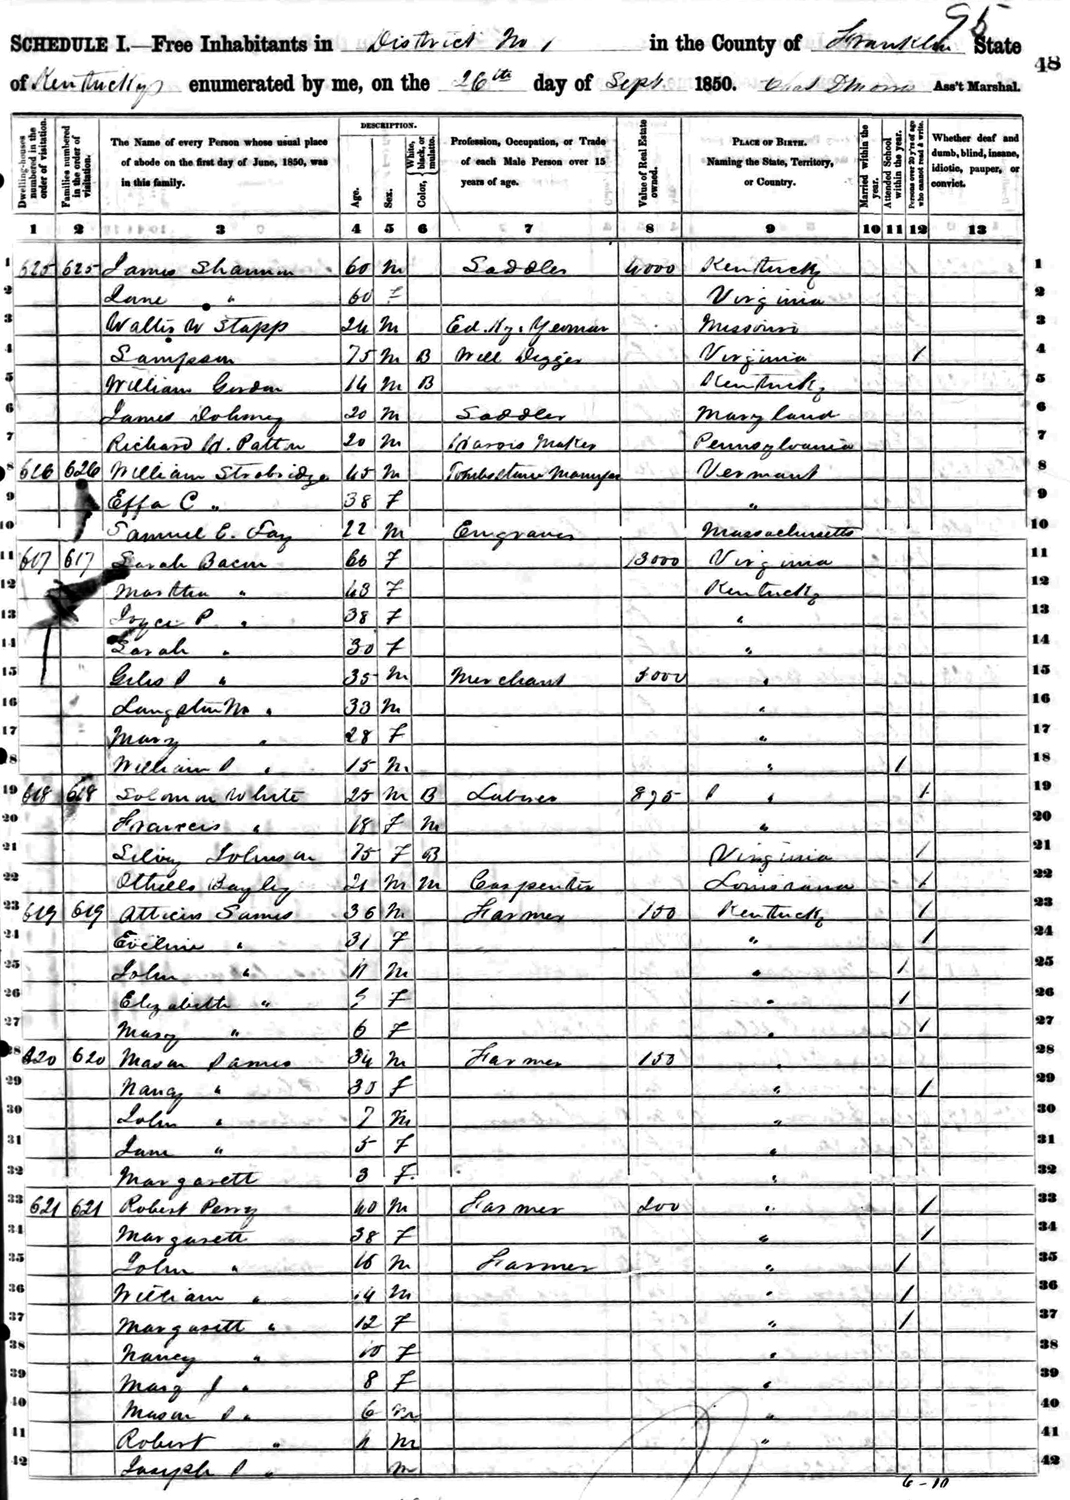 95
SCHEDULE I.—Free Inhabitants in District No 1 in the County of Franklin State
48
of Kentucky enumerated by me, on the 26th day of Sept 1850. Ass't Marshal.
Dwelling-houses numbered in the order of visitation.
Families numbered in the order of visitation.
The Name of every Person whose usual place of abode on the first day of June, 1850, was in this family.
DESCRIPTION.
Age.
Sex.
Color, White, black, or mulatto.
Profession, Occupation, or Trade of each Male Person over 15 years of age.
Value of Real Estate owned.
PLACE OF BIRTH. Naming the State, Territory, or Country.
Married within the year.
Attended School within the year.
Persons over 20 y'rs of age who cannot read & write.
Whether deaf and dumb, blind, insane, idiotic, pauper, or convict.
1 2 3 4 5 6 7 8 9 10 11 12 13
1 625 625 James Shannon 60 M Saddler 4000 Kentucky 1
2 Jane " 60 F Virginia 2
3 Wallis W Stapp 24 M Ed. Ky. Yeoman Missouri 3
4 Sampson 75 M B Well Digger Virginia / 4
5 William Gordon 14 M B Kentucky 5
6 James Dohney 20 M Saddler Maryland 6
7 Richard H. Patton 20 M Maker Pennsylvania 7
8 616 626 William Strobridge 45 M Tombstone Vermont 8
9 Effa C " 38 F " 9
10 Samuel E. Fay 22 M Engraver Massachusetts 10
11 617 617 Sarah Bacon 66 F 13000 Virginia 11
12 Martha " 43 F Kentucky 12
13 Joyce P " 38 F " 13
14 Sarah " 30 F " 14
15 Giles P " 35 M Merchant 5000 " 15
16 Langston M " 33 M " 16
17 Mary " 28 F " 17
18 William P " 15 M " / 18
19 618 618 Solomon White 25 M B Laborer 875 " / 19
20 Frances " 18 F M " 20
21 Silvy Johnson 75 F B Virginia / 21
22 Othello Bayley 21 M M Carpenter Louisiana / 22
23 619 619 Atticus Sames 36 M Farmer 150 Kentucky / 23
24 Eveline " 31 F " / 24
25 John " 11 M " / 25
26 Elizabeth " 9 F " / 26
27 Mary " 6 F " / 27
28 620 620 Mason Sames 34 M Farmer 150 " 28
29 Nancy " 30 F " / 29
30 John " 7 M " 30
31 Jane " 5 F " 31
32 Margarett 3 F " 32
33 621 621 Robert Perry 40 M Farmer 200 " / 33
34 Margarett 38 F " / 34
35 John " 16 M Farmer " / 35
36 William " 14 M " / 36
37 Margarett " 12 F " / 37
38 Nancy " 10 F " 38
39 Mary J " 8 F " 39
40 Mason P " 6 M " 40
41 Robert " 4 M " 41
42 Joseph P " M 42
6-10